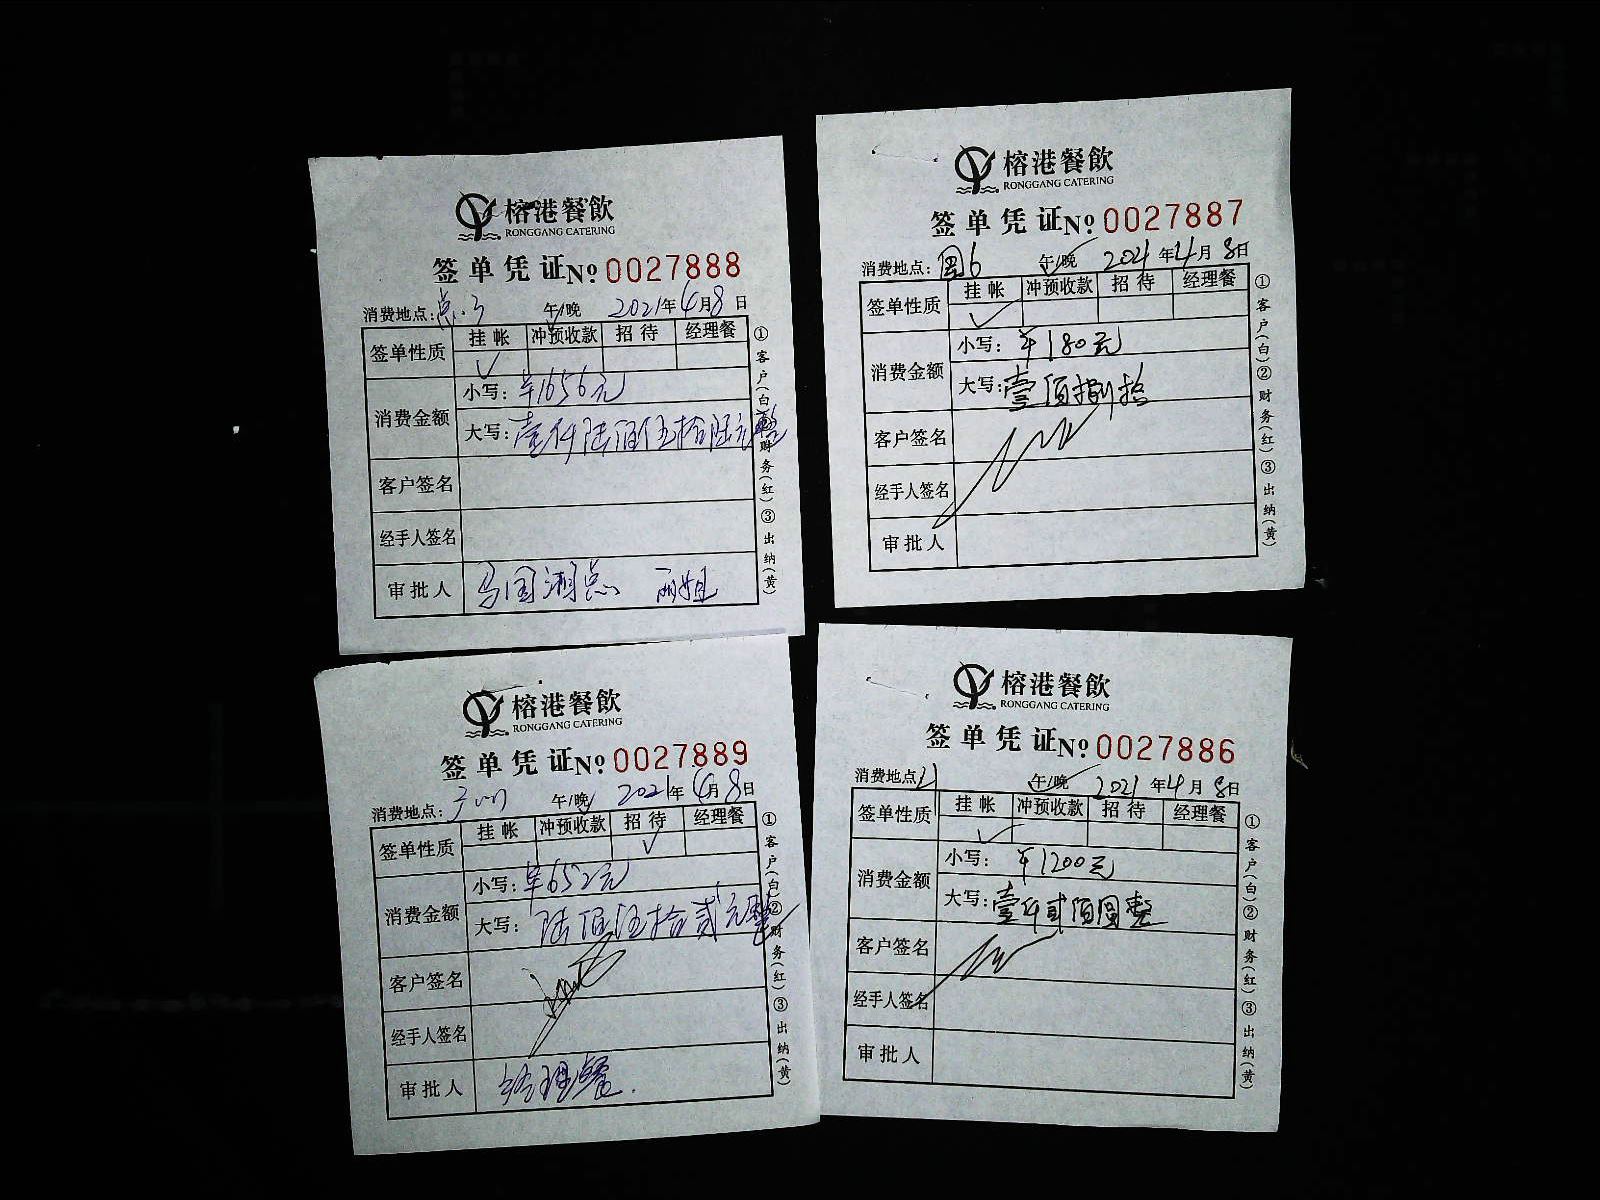 榕港餐飲
RONGGANG CATERING
签单凭证 № 0027888
消费地点: 午/晚 2021年4月8日
签单性质 挂帐 冲预收款 招待 经理餐
✓
消费金额 小写: ¥1656元
大写: 壹仟陆佰伍拾陆元整
客户签名
经手人签名
审批人
①客户(白)②财务(红)③出纳(黄)
榕港餐飲
RONGGANG CATERING
签单凭证 № 0027887
消费地点: 午/晚 2021年4月8日
签单性质 挂帐 冲预收款 招待 经理餐
✓
消费金额 小写: ¥180元
大写: 壹佰捌拾
客户签名
经手人签名
审批人
①客户(白)②财务(红)③出纳(黄)
榕港餐飲
RONGGANG CATERING
签单凭证 № 0027889
消费地点: 午/晚 2021年4月8日
签单性质 挂帐 冲预收款 招待 经理餐
✓
消费金额 小写: ¥652元
大写: 陆佰伍拾贰元整
客户签名
经手人签名
审批人 经理餐.
①客户(白)②财务(红)③出纳(黄)
榕港餐飲
RONGGANG CATERING
签单凭证 № 0027886
消费地点 午/晚 2021年4月8日
签单性质 挂帐 冲预收款 招待 经理餐
✓
消费金额 小写: ¥1200元
大写: 壹仟贰佰圆整
客户签名
经手人签名
审批人
①客户(白)②财务(红)③出纳(黄)